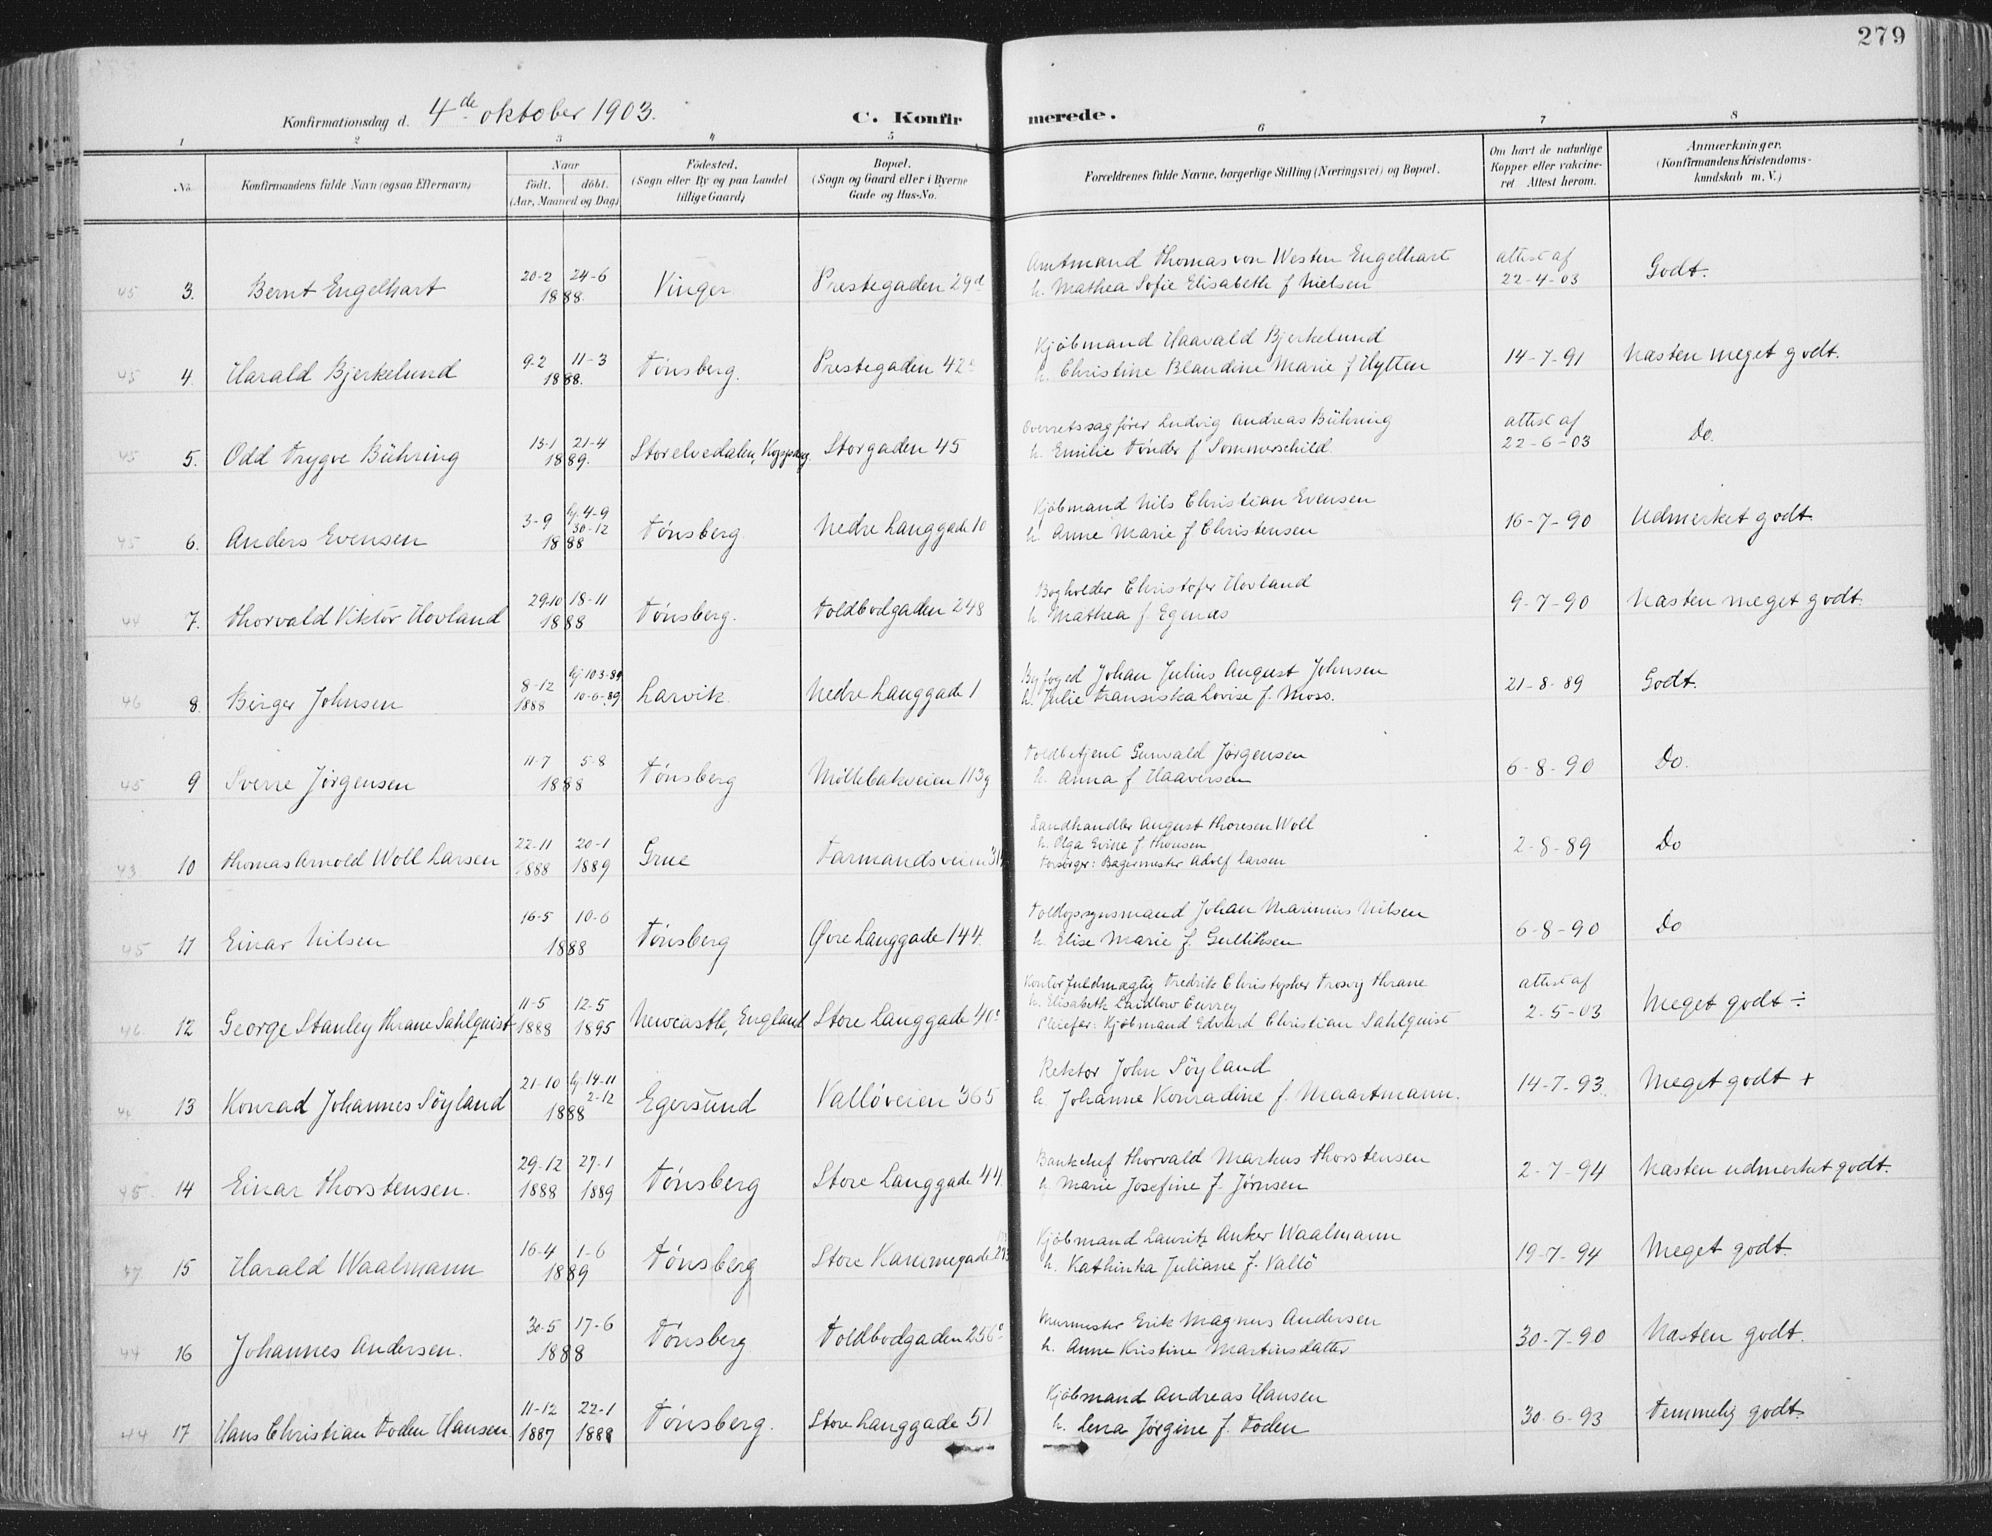 279
Konfirmationsdag d. 4de oktober 1903.
C. Konfirmerede.
1 2 3 4 5 6 7 8
No. Konfirmandens fulde Navn (ogsaa Efternavn) Naar født. døbt. (Aar, Maaned og Dag) Fødested. (Sogn eller By og paa Landet tillige Gaard) Bopæl. (Sogn og Gaard eller i Byerne Gade og Hus-No. Forældrenes fulde Navne, borgerlige Stilling (Næringsvei) og Bopæl. Om havt de naturlige Kopper eller vakcineret Attest herom. Anmærkninger. (Konfirmandens Kristendomskundskab m. V.)
45 3. Bernt Engelhart 20-2 24-6 1888. Vinger Prestegaden 29d Amtmand Thomas von Westen Engelhart
h. Mathea Sofie Elisabeth f Nielsen attest af 22-4-03 Godt.
45 4. Harald Bjerkelund 9-2 11-3 1888. Tønsberg. Prestegaden 42c Kjøbmand Haavald Bjerkelund
h. Christine Blandine Marie f Hytten 14-7-91 Næsten meget godt.
45 5. Odd Trygve Bühring 13-1 21-4 1889. Storelvedalen, Storgaden 45 Overretssagfører Ludvig Andreas Bühring
h. Emilie Tønder f Sommerschild attest af 22-6-03 Do.
45 6. Anders Evensen 3-9 hj. 4-9 30-12 1888 Tønsberg Nedre Langgade 10 Kjøbmand Nils Christian Evensen
h. Anne Marie f Christensen 16-7-90 Udmerket godt
44 7. Thorvald Viktor Hovland 29-10 18-11 1888 Tønsberg. Toldbodgaden 248 Bogholder Christofer Hovland
h. Mathea f. Egenæs 9-7-90 Næsten meget godt
46 8. Birger Johnsen 8-12 1888 hj. 10-3-89 10-6-89 Larvik. Nedre Langgade 1 Byfoged Johan Julius August Johnsen
h. Julie Fransiska Lovise f. Moss. 21-8-89 Godt.
45 9 Sverre Jørgensen 11-7 5-8 1888 Tønsberg Møllebakveien 113g Toldbetjent Gunvald Jørgensen
h. Anna f Haaversen 6-8-90 Do.
43 10 Thomas Arnold Woll Larsen 22-11 1888 20-1 1889 Grue Farmandsveien Landhandler August Thoresen Woll
h. Olga Evine f Thonsen
Forsørger: Bagermester Adolf Larsen 2-8-89 Do
45 11 Einar Nilsen 16-5 10-6 1888 Tønsberg Øvre Langgade 144. Toldopsynsmand Johan Marinius Nilsen
h. Elise Marie f. Gulliksen 6-8-90 Do
46 12 George Stanley Thrane Sahlquist 11-5 1888 12-5 1895 Newcastle, England Store Langgade 40c Kontorfuldmægtig Fredrik Christopher Frosoy Thrane
h. Elisabeth Laidlow Currey
Pleiefar: Kjøbmand Edvard Christian Sahlquist attest af 2-5-03 Meget godt ÷
13 Konrad Johannes Søyland 21-10 hj. 14-11 2-12 1888 Egersund Valløveien 365 Rektor John Søyland
h. Johanne Konradine f. Maartmann. 14-7-93. Meget godt +
45 14 Einar Thorstensen. 29-12 1888 27-1 1889 Tønsberg Store Langgade 44 Bankchef Thorvald Markus Thorstensen
h. Marie Josefine f. Jørnsen 2-7-94 Næsten udmerket godt.
15 Harald Waalmann 16-4 1-6 1889 Tønsberg Store Færgegade Kjøbmand Lauritz Anker Waalmann
h. Kathinka Juliane f. Vallø 19-7-94 Meget godt
44 16 Johannes Andersen. 30-5 17-6 1888 Tønsberg Toldbodgaden 256c Murmester Erik Magnus Andersen
h. Anne Kristine Martinsdatter 30-7-90 Næsten godt.
44 17 Hans Christian Foden Hansen 11-12 1887 22-1 1888 Tønsberg. Store Langgade 51 Kjøbmand Andreas Hansen
h. Lena Jørgine f. Foden 30-6-93 Temmelig godt.